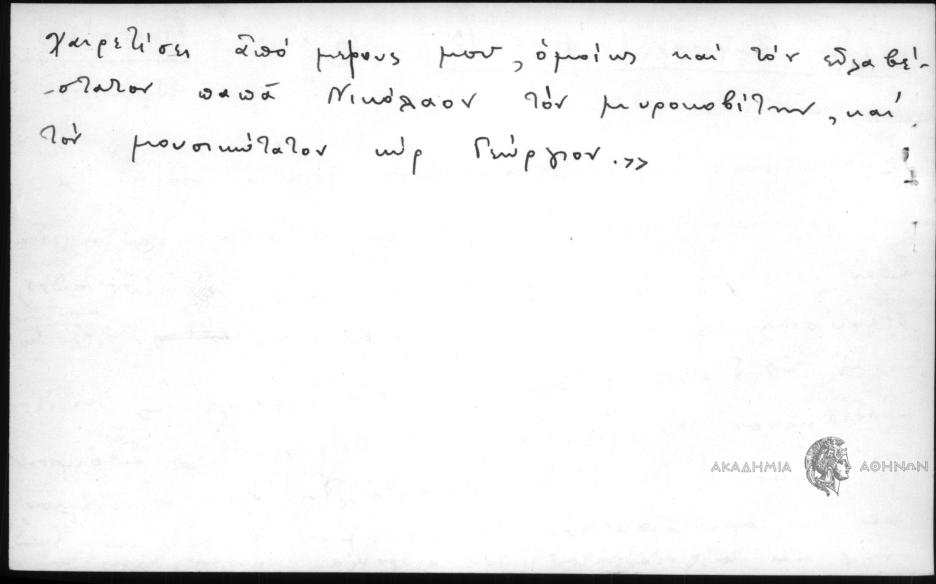 χαιρετίσει ἀπό μέρους μου, ὁμοίως καί τόν εὐλαβέ-
-στατον παπᾶ Νικόλαον τόν μυροκοβίτην, καί
τόν μουσικώτατον κύρ Γεώργιον.>>
ΑΚΑΔΗΜΙΑ ΑΘΗΝΩΝ